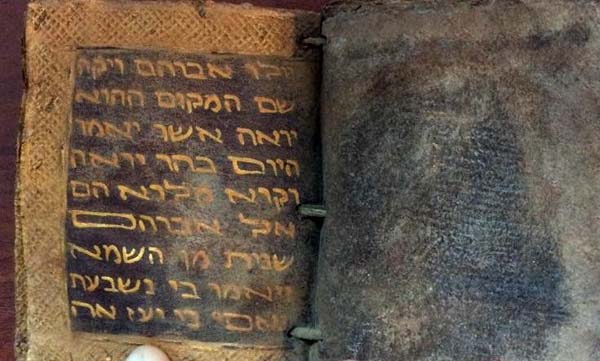 אברהם ויקח
שם המקום ההוא
יראה אשר יאמר
היום בהר יראה
וקרא מלוא הם
אל אברהם
שנית מן השמא
ויאמר בי נשבעת
כי יעז אה